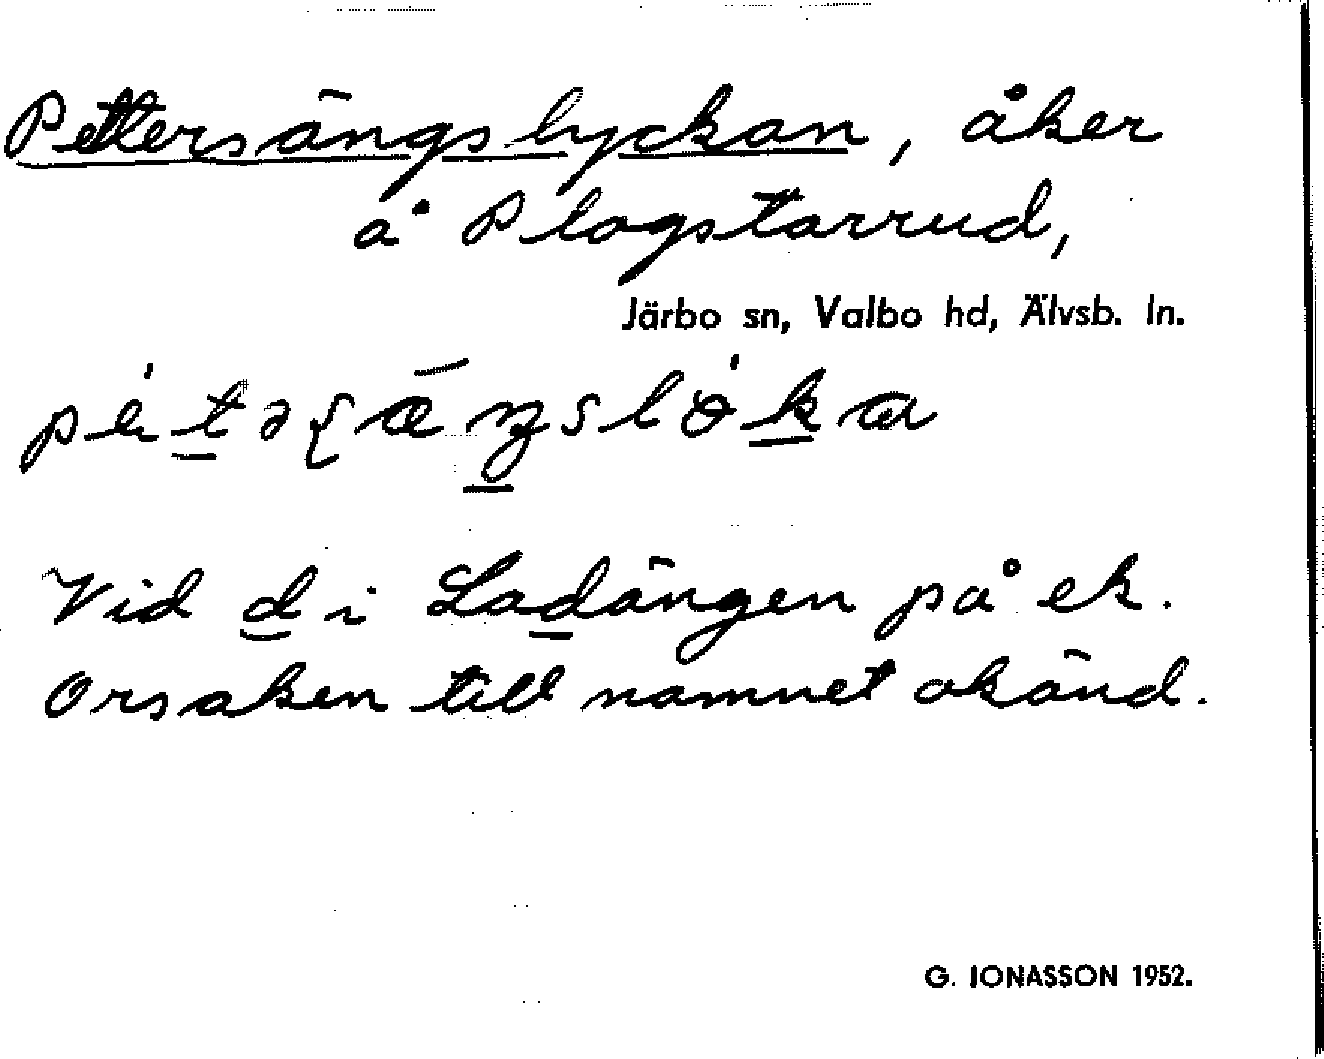 Pettersängslyckan, åker
å Plogstarrud,
Järbo sn, Valbo hd, Älvsb. ln.
Vid di Ladängen på ek.
Orsaken till namnet okänd.
G. JONASSON 1952.